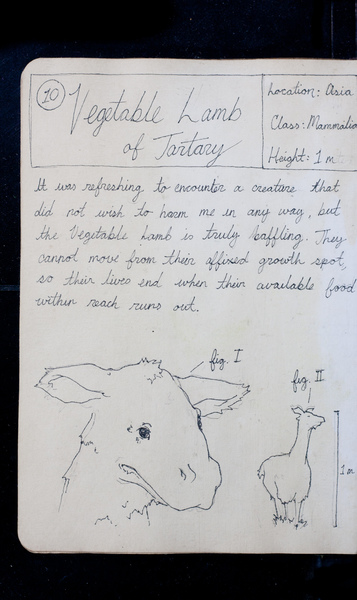 10
Vegetable Lamb
of Tartary
Location: Asia
Class: Mammalia
Height: 1 m
It was refreshing to encounter a creature that
did not wish to harm me in any way, but
the Vegetable Lamb is truly baffling. They
cannot move from their affixed growth spot,
so their lives end when their available food
within reach runs out.
fig. I
fig. II
1 m